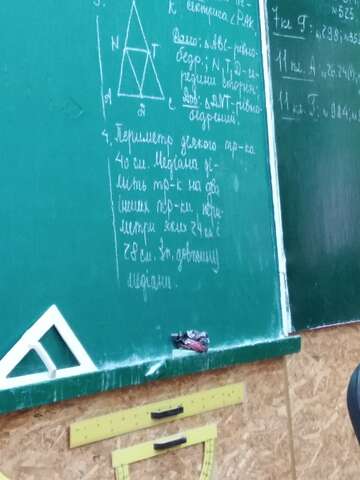 3.
К
Дано: △ABC-рівно-
бедр.; N,T,D-се-
редини сторін.
Дов: △DNT-рівно-
бедрений.
N T
A 2 C
4. Периметр деякого тр-ка
40 см. Медіана ді-
лить тр-к на два
інших тр-ки, пери-
метри яких 24 см і
28 см. Зн. довжину
медіани.
525
7 кл. Г:
11 кл. А
11 кл. Г: